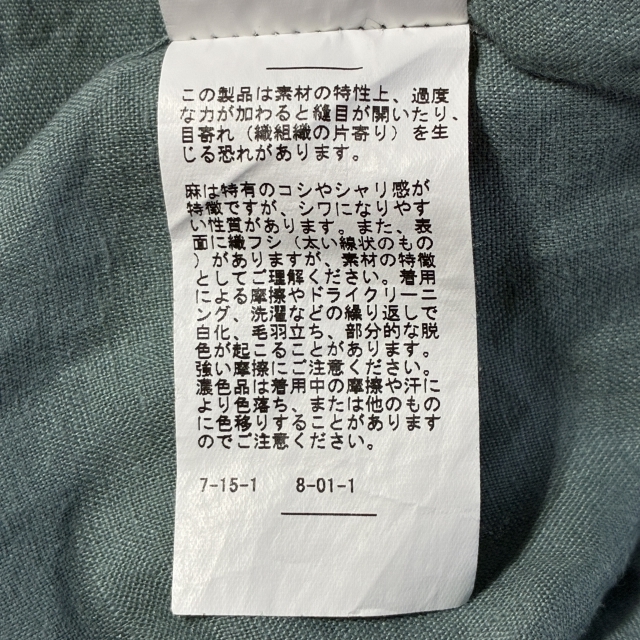 この製品は素材の特性上、過度
な力が加わると縫目が開いたり、
目寄れ（織組織の片寄り）を生
じる恐れがあります。
麻は特有のコシやシャリ感が
特徴ですが、シワになりやす
い性質があります。また、表
面に織フシ（太い線状のもの
）がありますが、素材の特徴
としてご理解ください。着用
による摩擦やドライクリーニ
ング、洗濯などの繰り返しで
白化、毛羽立ち、部分的な脱
色が起こることがあります。
強い摩擦にご注意ください。
濃色品は着用中の摩擦や汗に
より色落ち、または他のもの
に色移りすることがあります
のでご注意ください。
7-15-1 8-01-1